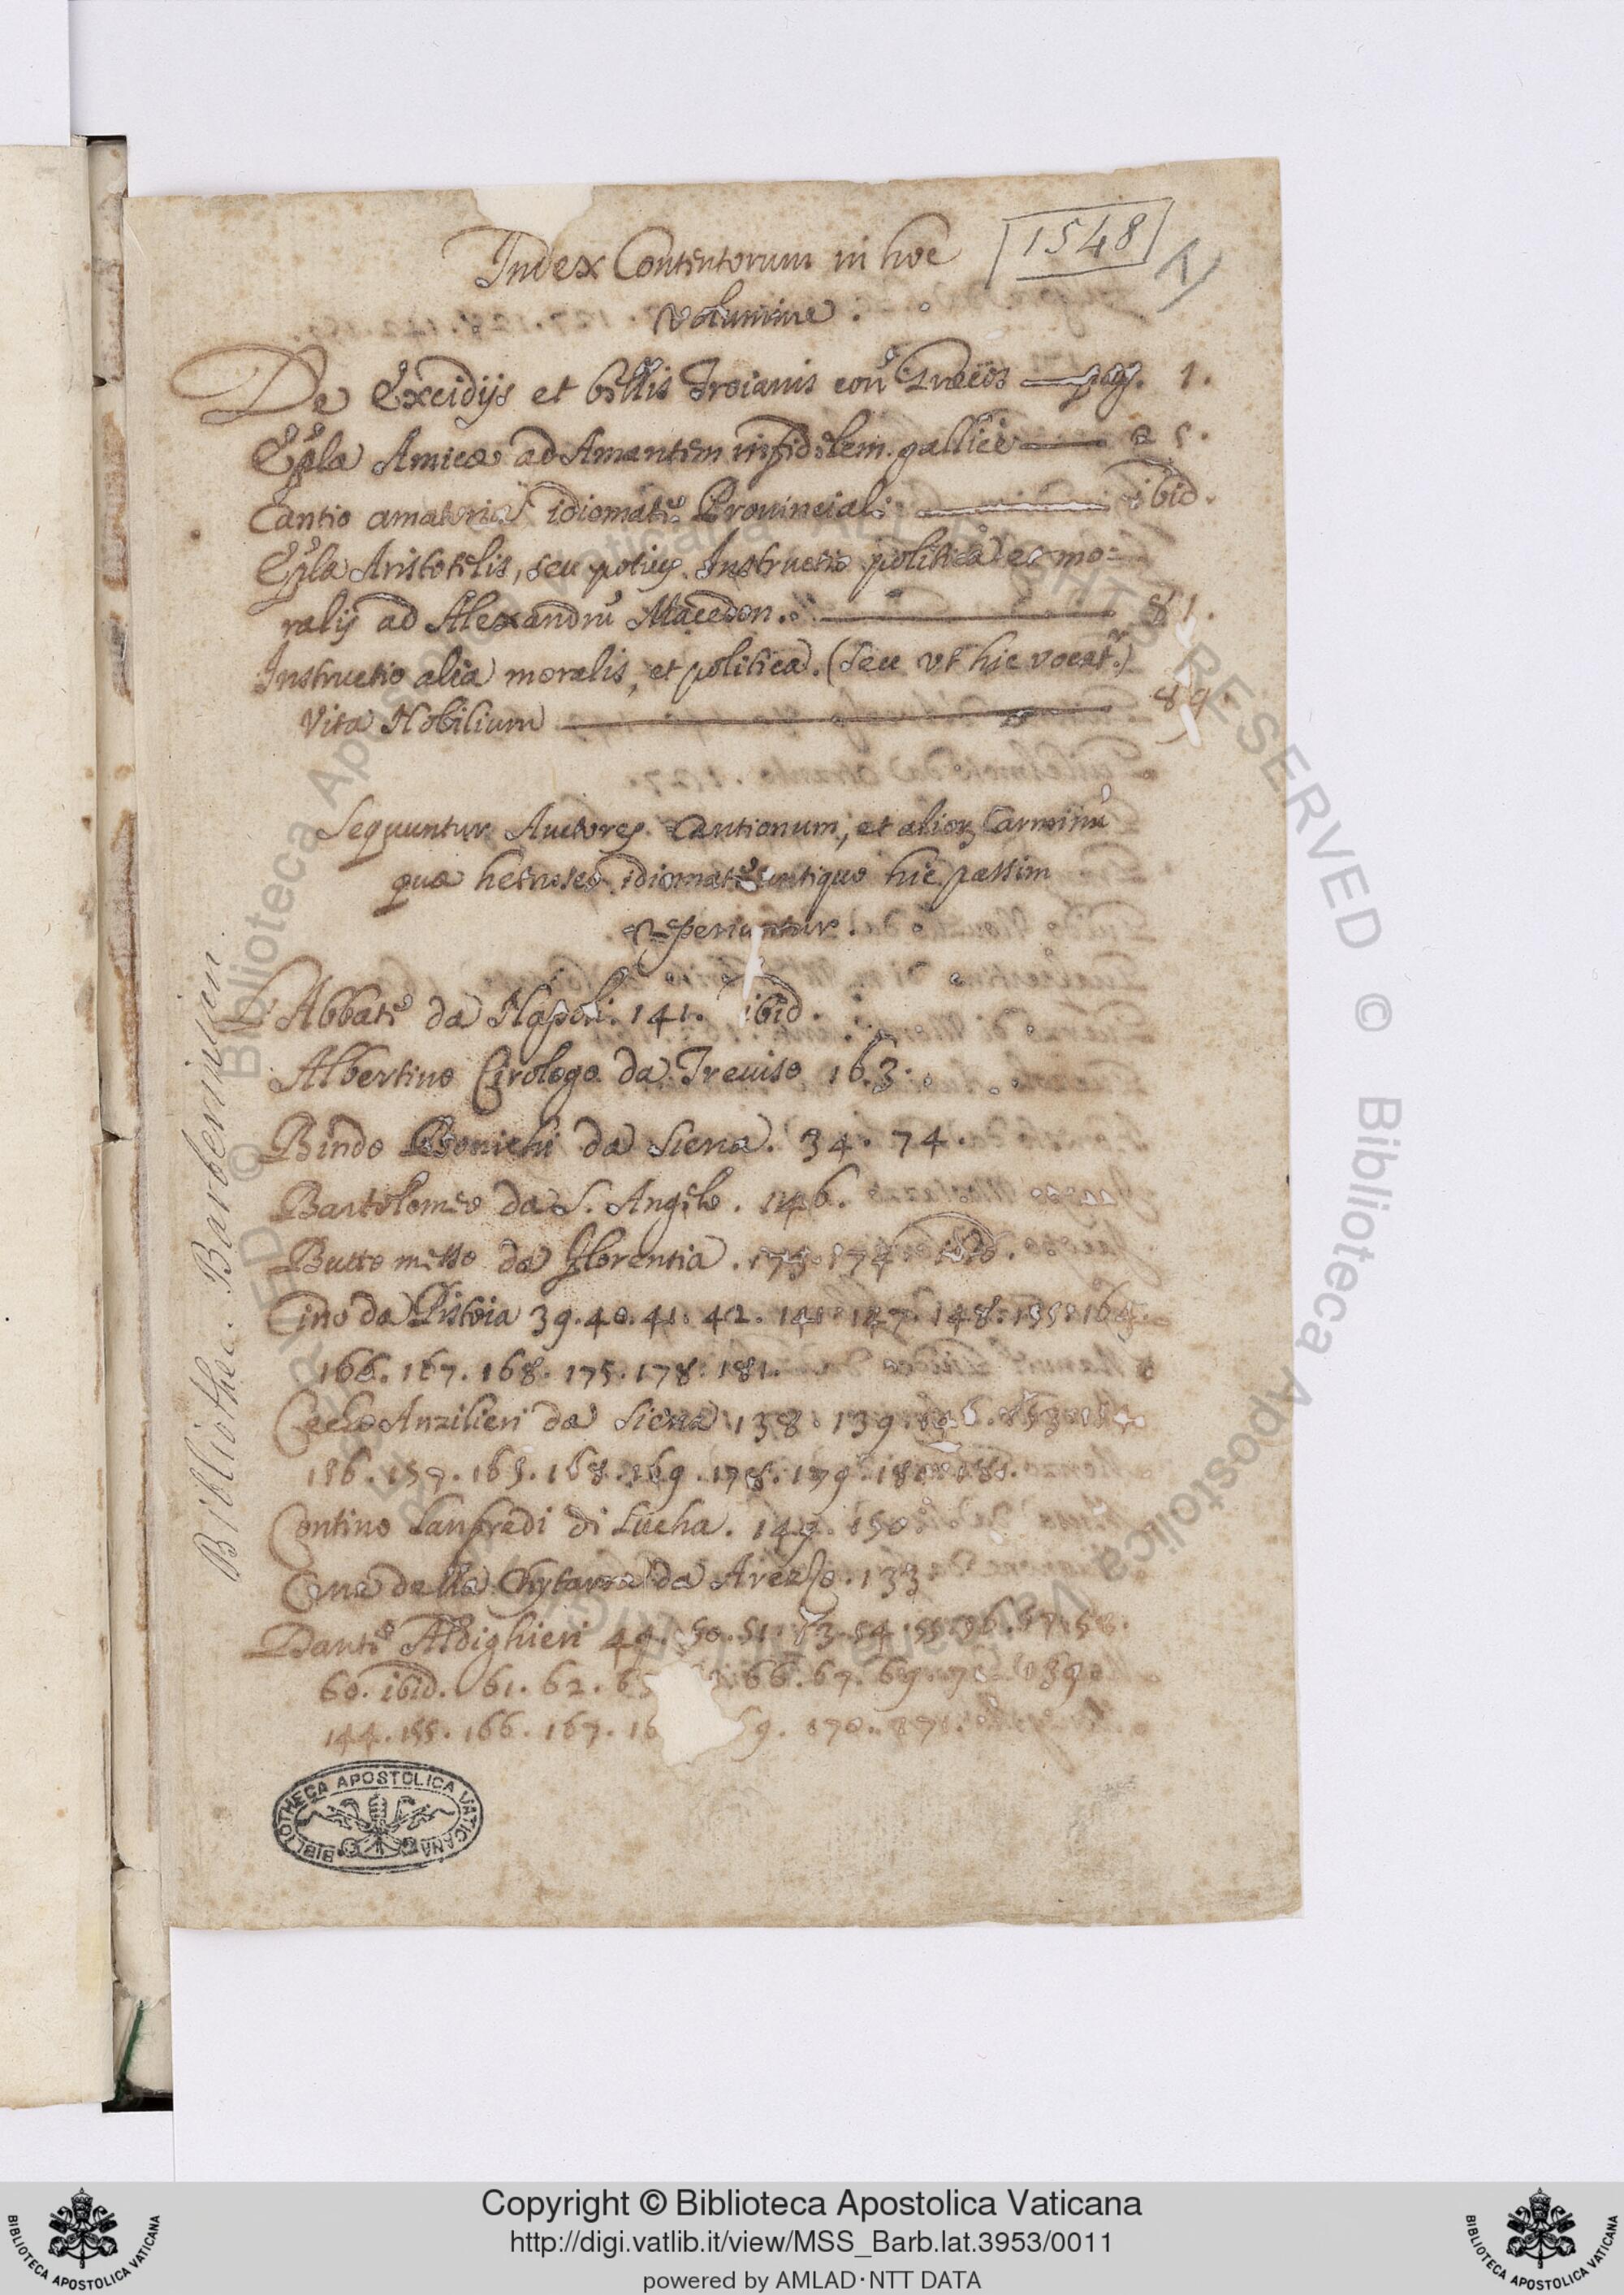 Index Contentorum in hoc
1548
volumine.
De Excidijs et bellis Troianis con Graecos pag. 1.
Epla Amicae ad Amantem infidelem. gallice 25.
Cantio amatoria idiomate Prouinciali ibid.
Epla Aristotelis, seu potius Instructio politica et mo=
ralis ad Alexandrū Macedon. 81.
Instructio alia moralis, et politica. (seu vt hic vocat.)
Vita Nobilium 89.
Sequuntur Auctores Cantionum, et alior Carminū
quae hetrusco idiomate antiquo hic passim
reperiuntur.
L'Abbate da Napoli. 141. ibid.
Albertino Cirologo da Treuiso 163.
Bindo Bonichi da Siena. 34. 74.
Bartolomeo da S. Angelo. 146.
Butto messo da Florentia. 173. 174. ibid.
Cino da Pistoia 39. 40. 41. 42. 141. 147. 148. 155. 165.
166. 167. 168. 175. 178. 181.
Cecho Anzilieri da Siena 138. 139.
156. 157. 165. 168. 169. 178. 179. 180. 181.
Contino Lanfredi di Lucha. 149. 150.
Cene della Chytarra da Arezzo. 133.
Dante Aldighieri 49. 50. 51. 53. 54. 55. 56. 57. 58.
60. ibid. 61. 62. 66. 67. 69.
144. 155. 166. 167. 170. 171.
Bibliothec. Barberinæ
BIBLIOTHECA APOSTOLICA VATICANA
© Biblioteca Apostolica Vaticana ALL RIGHTS RESERVED
Copyright © Biblioteca Apostolica Vaticana
http://digi.vatlib.it/view/MSS_Barb.lat.3953/0011
powered by AMLAD·NTT DATA
BIBLIOTECA APOSTOLICA VATICANA
BIBLIOTECA APOSTOLICA VATICANA